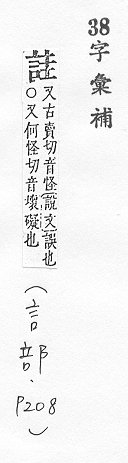 38
字彙補
詿
又古賣切音怪(說文)誤也
○又何怪切音壞礙也
(言部、P208)